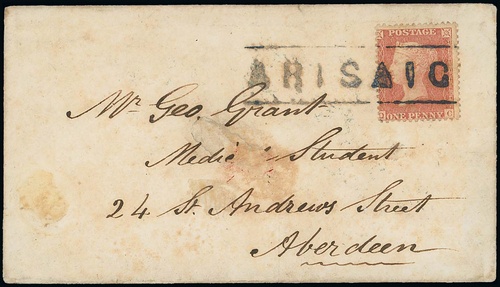 POSTAGE
ARISAIG
ONE PENNY
Mr. Geo. Grant
Student
24 St. Andrews Street
Aberdeen